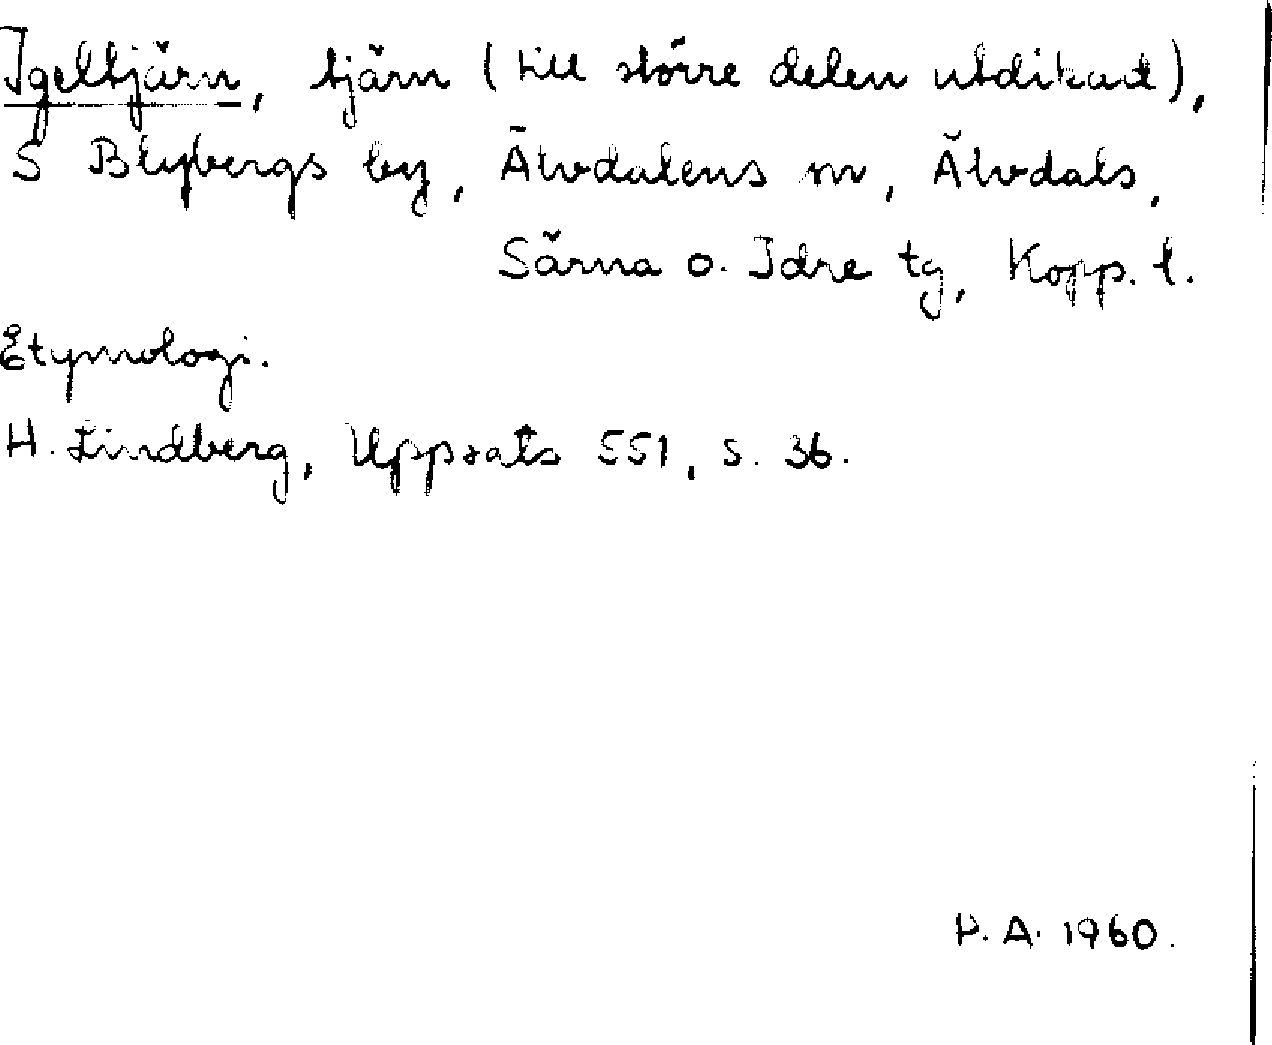 Igeltjärn, tjärn (till större delen utdikad),
S Blybergs by, Älvdalens sn, Älvdals,
Särna o. Idre tg, Kopp. l.
Etymologi.
H. Lindberg, Uppsats 551, s. 36.
H. A. 1960.